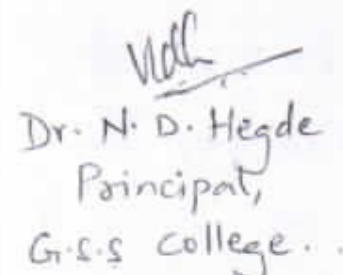 Dr. N. D. Hegde
Principal,
G.S.S College.